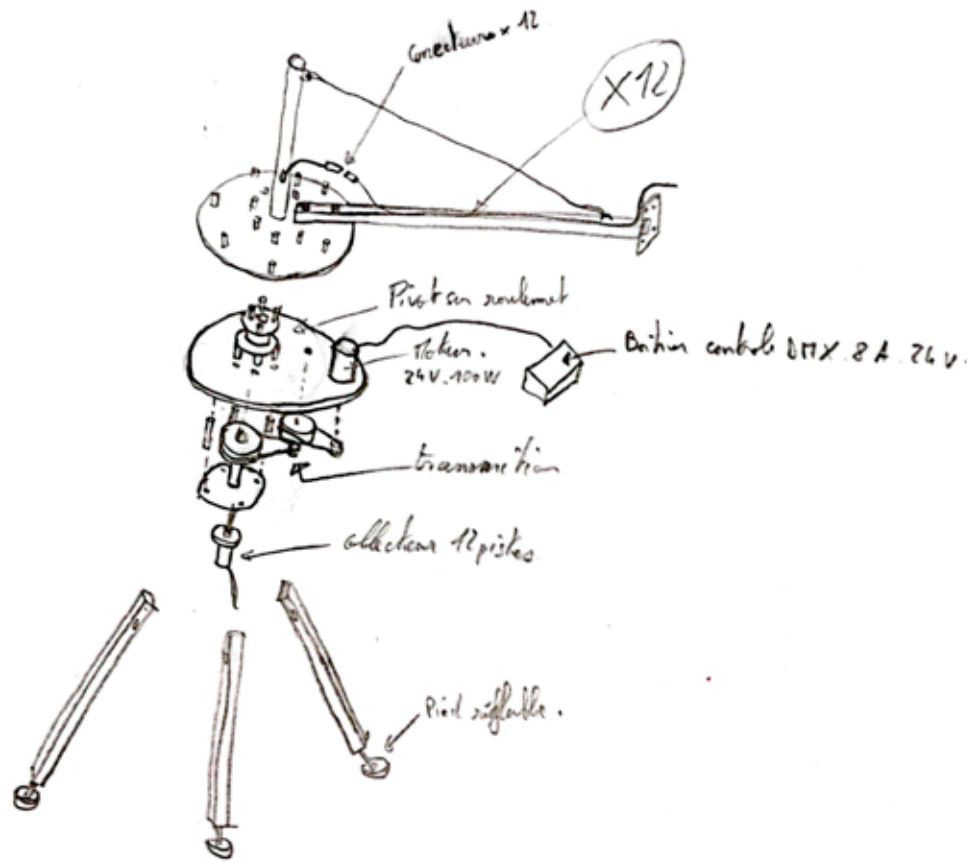 connecteurs x 12
X12
Pivot sur roulement
Moteur.
24V.100W
Boîtier controle DMX.8A.24v.
transmition
collecteur 12 pistes.
Pied réglable.